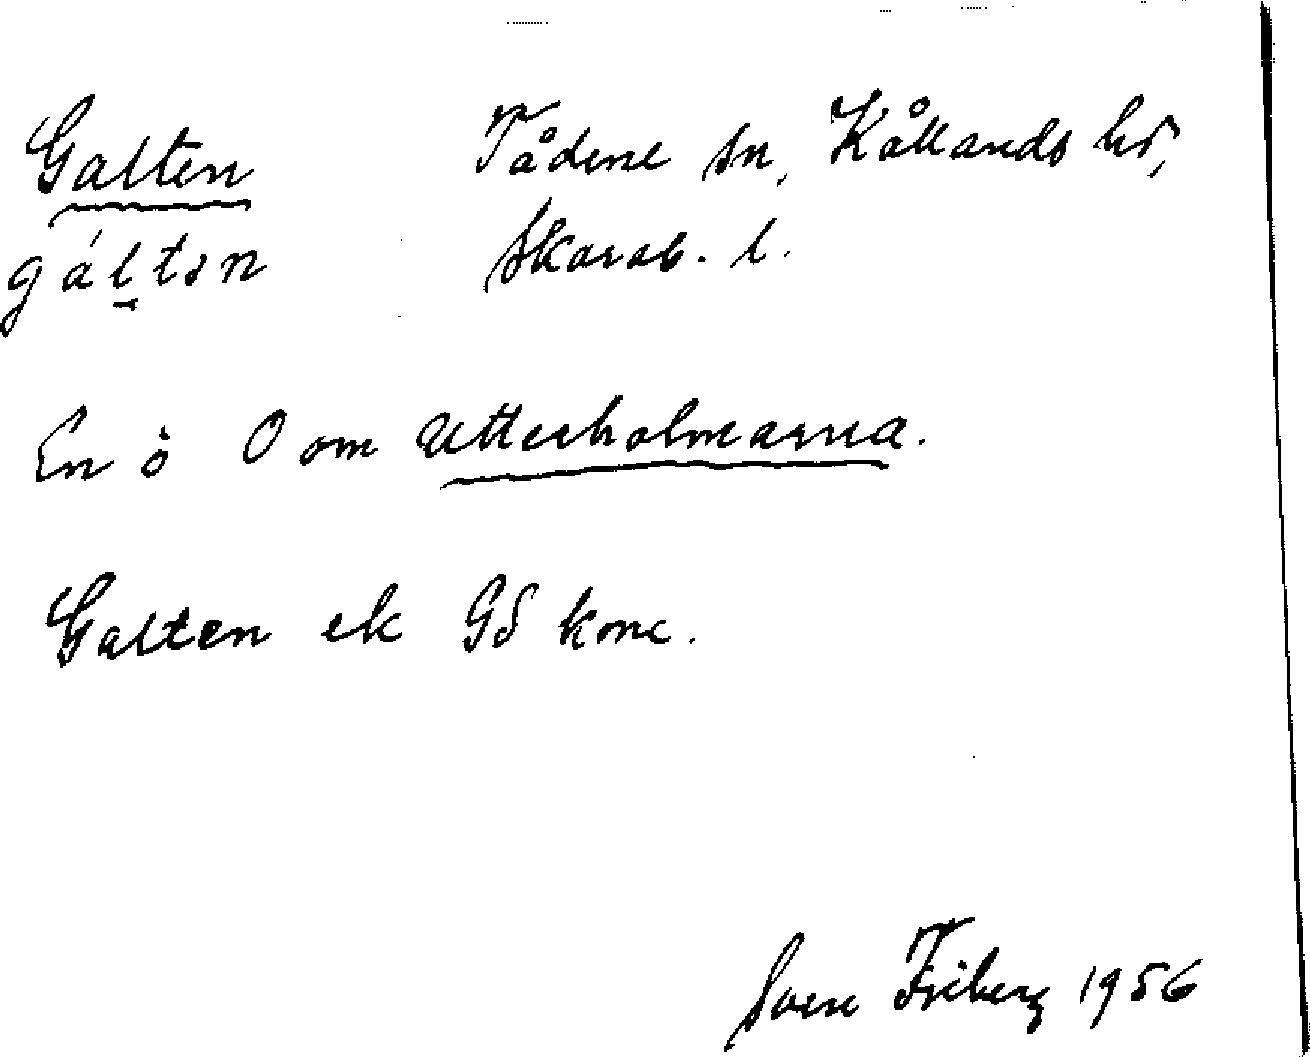 Galten Tådene sn, Kållands hd,
gáltən Skarab. l.
En ö O om Utterholmarna.
Galten ek GS konc.
Sven Friberg 1956